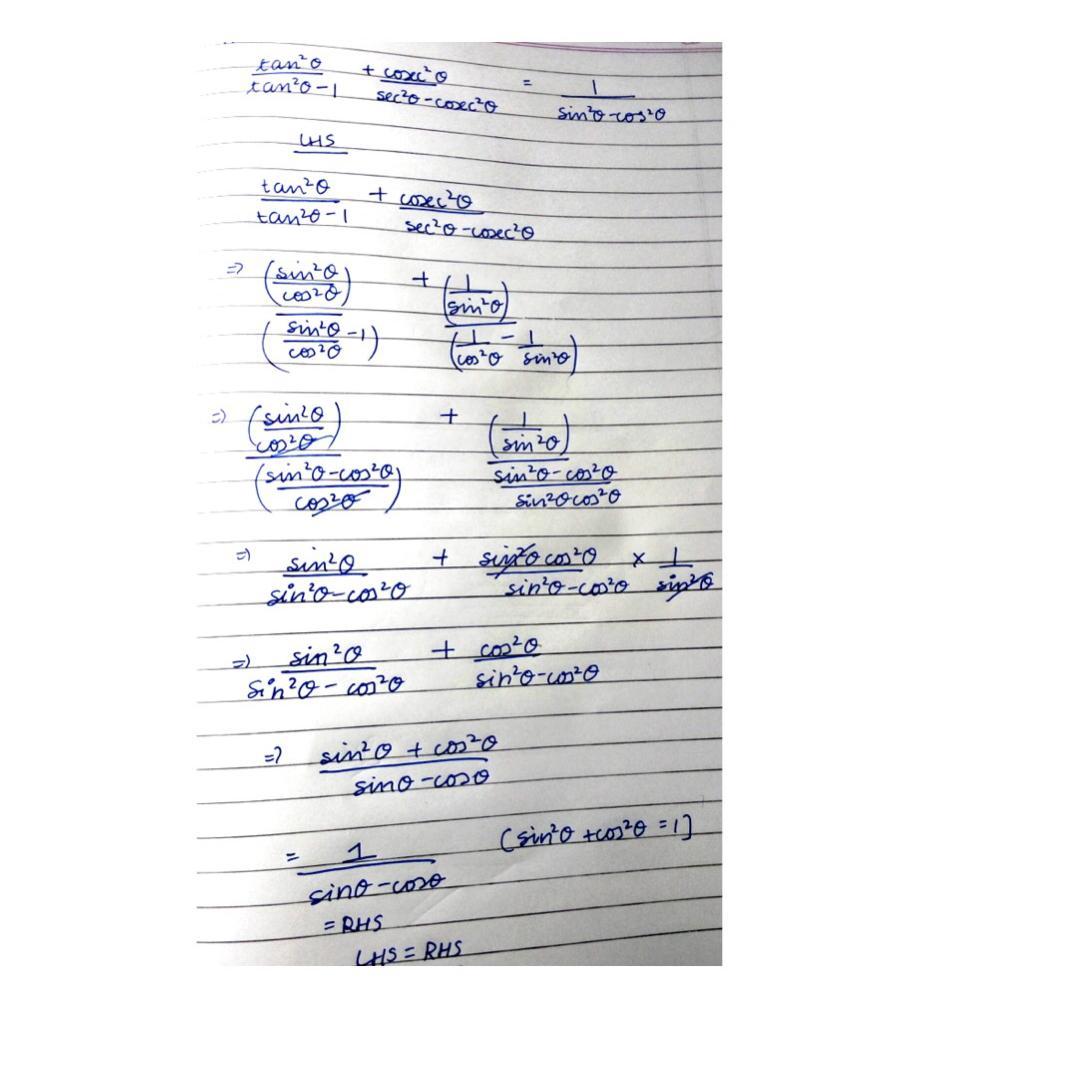 tan²θ/(tan²θ-1) + cosec²θ/(sec²θ-cosec²θ) = 1/(sin²θ-cos²θ)
LHS
tan²θ/(tan²θ-1) + cosec²θ/(sec²θ-cosec²θ)
=> (sin²θ/cos²θ)/(sin²θ/cos²θ -1) + (1/sin²θ)/(1/cos²θ - 1/sin²θ)
=> (sin²θ/cos²θ)/((sin²θ-cos²θ)/cos²θ) + (1/sin²θ)/((sin²θ-cos²θ)/(sin²θcos²θ))
=> sin²θ/(sin²θ-cos²θ) + sin²θcos²θ/(sin²θ-cos²θ) × 1/sin²θ
=> sin²θ/(sin²θ-cos²θ) + cos²θ/(sin²θ-cos²θ)
=> (sin²θ + cos²θ)/(sinθ-cosθ)
= 1/(sinθ-cosθ) [sin²θ+cos²θ=1]
= RHS
LHS = RHS